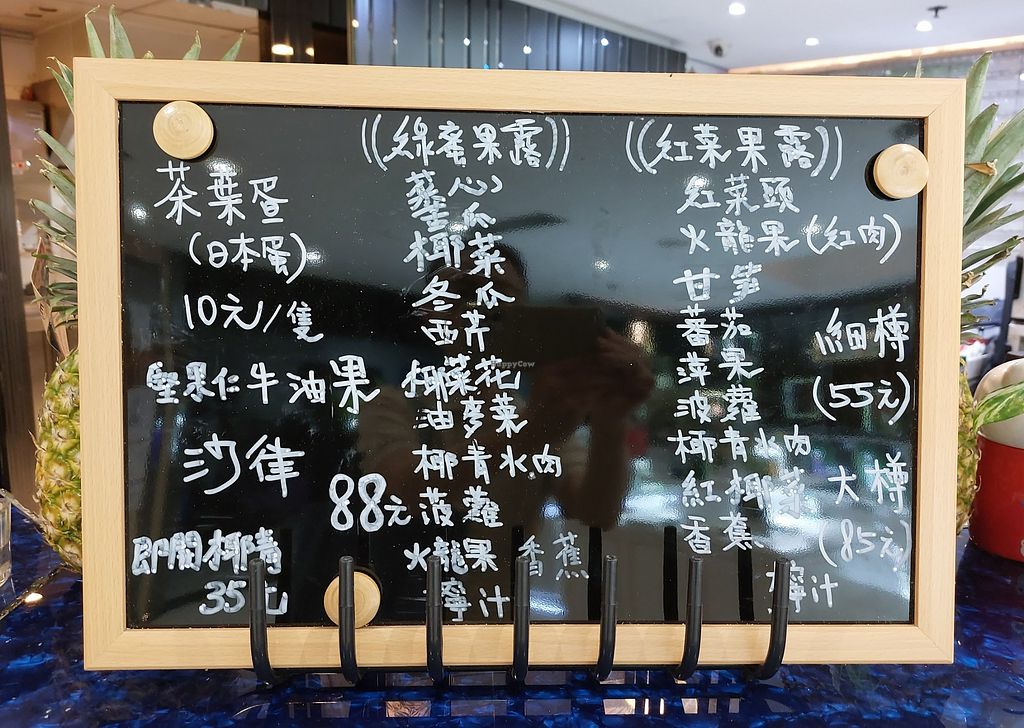 茶葉蛋
(日本蛋)
10元/隻
堅果仁牛油果
沙律
88元
即開椰青
35元
((綠蜜果露))
心
瓜
椰菜
冬瓜
西芹
椰菜花
油麥菜
椰青水肉
菠蘿
火龍果 香蕉
檸汁
((紅菜果露))
紅菜頭
火龍果(紅肉)
甘笋
蕃茄
萍果
波蘿
椰青水肉
紅椰菜
香蕉
檸汁
細樽
(55元)
大樽
(85元)
HappyCow